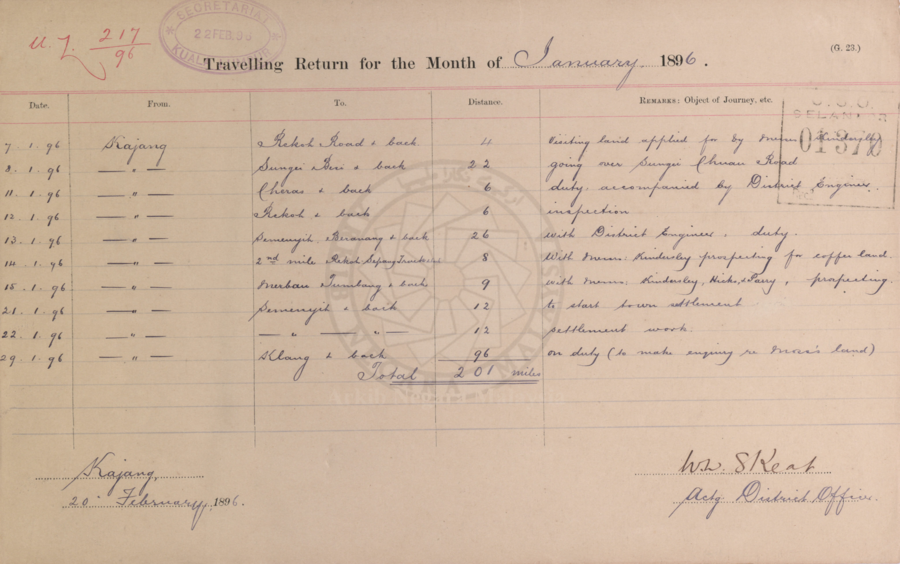 U. L. 217/96
SECRETARIAT
22 FEB. 96
KUALA LUMPUR
(G. 23.)
Travelling Return for the Month of January 1896.
Date. From. To. Distance. REMARKS: Object of Journey, etc.
SELANGOR
7 . 1 . 96 Kajang Rekoh Road & back 4 Visiting land applied for by Messrs Kindersley
8 . 1 . 96 — " — Sungei & back 22 going over Sungei Chuan Road
11 . 1 . 96 — " — Cheras & back 6 duty. accompanied by District Engineer.
12 . 1 . 96 — " — Rekoh & back 6 inspection
13 . 1 . 96 — " — Semenyih, Beranang & back 26 with District Engineer, duty.
14 . 1 . 96 — " — 2nd mile Rekoh Sepang 8 With Messrs: Kindersley prospecting for coffee land.
15 . 1 . 96 — " — Merbau Tumbang & back 9 with Messrs: Kindersley, Hicks, & Parry, prospecting.
21 . 1 . 96 — " — Semenyih & back 12 to start town settlement
22 . 1 . 96 — " — — " — — " — 12 settlement work
29 . 1 . 96 — " — Klang & back 96 on duty (to make enquiry re land)
Total 201 miles
Arkib Negara Malaysia
Kajang,
20 February, 1896.
W. Skeat
Actg District Officer.